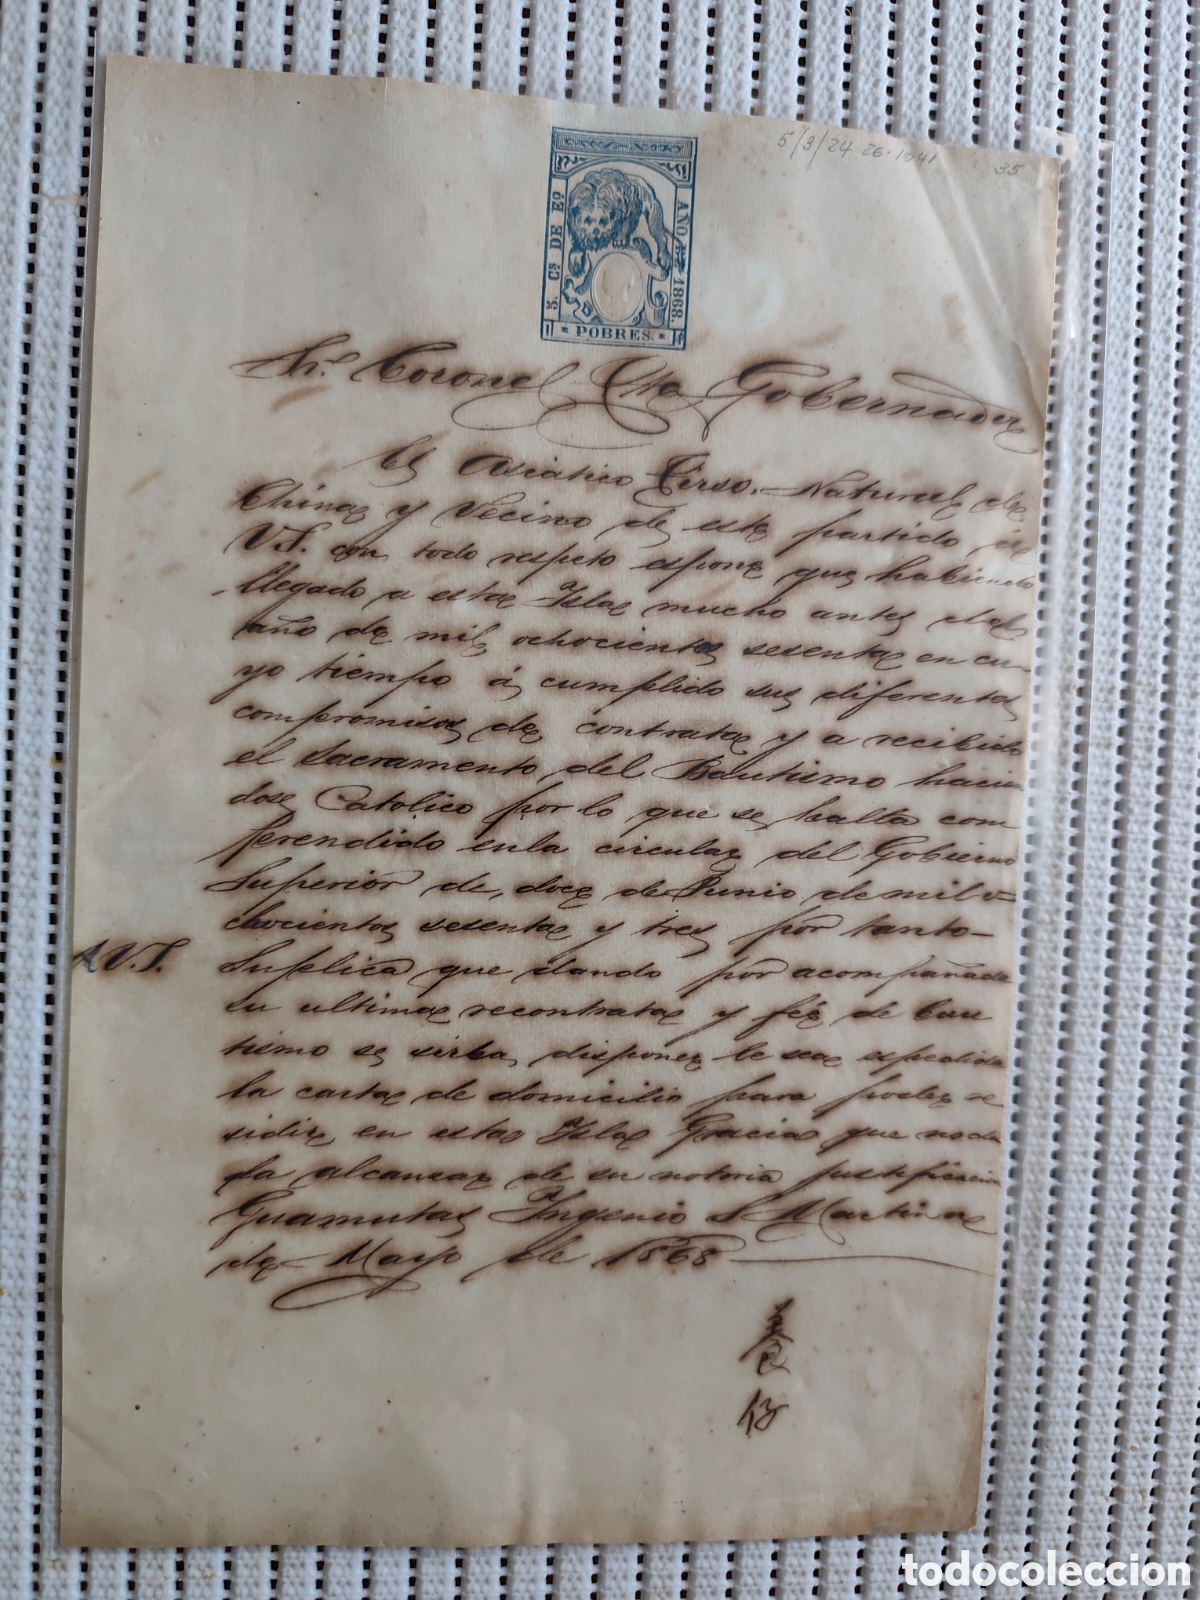 5/3/24 26.1041
35
5. Cs DE Eo
AÑO DE 1868.
* POBRES. *
Sr. Coronel Tte Gobernador
El Asiatico Tirso, Natural de
China y Vecino de este partido á
V.S. con todo respeto espone que habiendo
llegado a esta Ysla mucho antes del
año de mil ochocientos sesenta en cu-
yo tiempo á cumplido sus diferentes
compromisos de contrata y a recibido
el Sacramento del Bautismo hacien
dose Catolico por lo que se halla com
prendido en la circular del Gobierno
Superior de doce de Junio de mil o-
chocientos sesenta y tres por tanto-
A V.S. Suplica que dando por acompañada
su ultima recontrata y fée de bau
tismo se sirba disponer le sea espedida
la carta de domicilio para poder re
sidir en esta Ysla Gracia que no du
da alcansar de su notoria justificacion
Guamutas Yngenio S. Martin
de Mayo de 1868
養
仔
todocoleccion